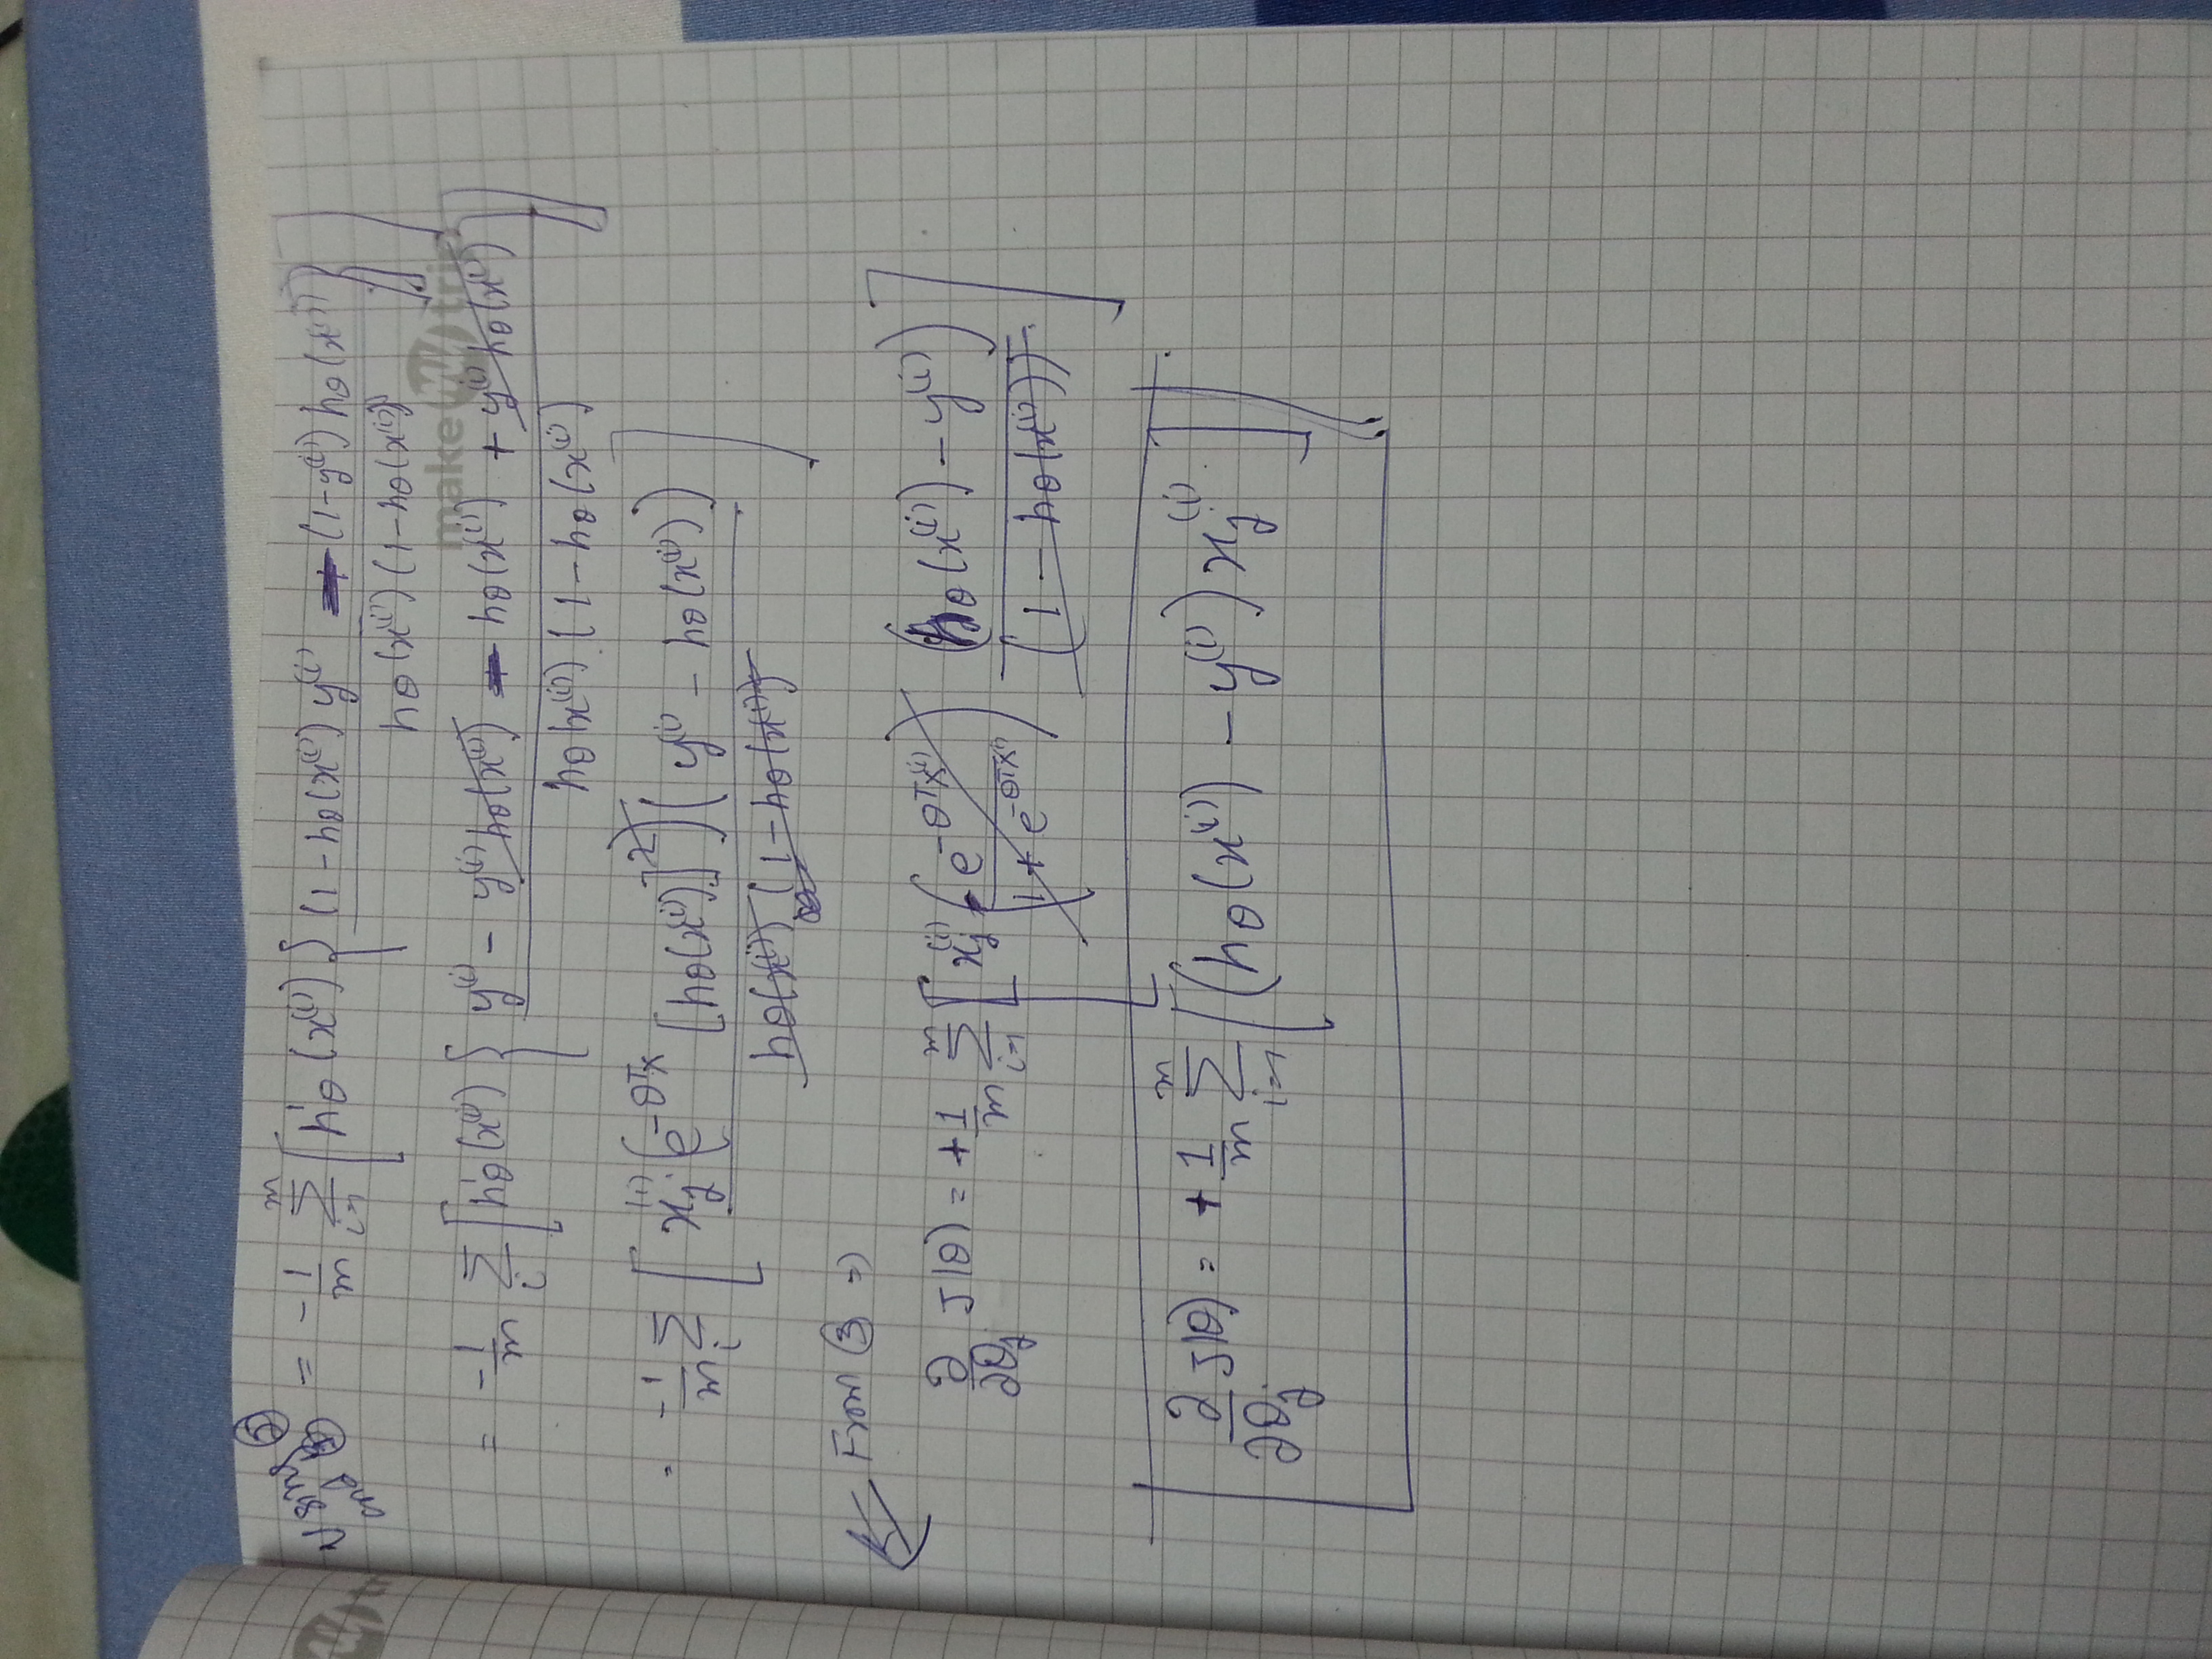 Using ② and ③ = -1/m Σ_{i=1}^{m} [h'θ(x⁽ⁱ⁾) { (1-hθ(x⁽ⁱ⁾) y⁽ⁱ⁾ - (1-y⁽ⁱ⁾) hθ(x⁽ⁱ⁾) / hθ(x⁽ⁱ⁾) (1-hθ(x⁽ⁱ⁾)) }]
make my trip
= -1/m Σ_i [h'θ(x⁽ⁱ⁾) { y⁽ⁱ⁾ - y⁽ⁱ⁾ hθ(x⁽ⁱ⁾) - hθ(x⁽ⁱ⁾) + y⁽ⁱ⁾ hθ(x⁽ⁱ⁾) / hθ(x⁽ⁱ⁾) (1-hθ(x⁽ⁱ⁾) }]
= -1/m Σ_i [ x_j⁽ⁱ⁾ (e^{-θᵀx} [hθ(x⁽ⁱ⁾)]²) (y⁽ⁱ⁾ - hθ(x⁽ⁱ⁾)) / hθ(x⁽ⁱ⁾) (1-hθ(x⁽ⁱ⁾)) ]
From ③ ⇒
∂/∂θ_j J(θ) = +1/m Σ_{i=1}^{m} [ x_j⁽ⁱ⁾ (e^{-θᵀx⁽ⁱ⁾} / 1+e^{-θᵀx⁽ⁱ⁾}) (hθ(x⁽ⁱ⁾) - y⁽ⁱ⁾) / (1 - hθ(x⁽ⁱ⁾)) ]
∂/∂θ_j J(θ) = +1/m Σ_{i=1}^{m} [(hθ(x⁽ⁱ⁾) - y⁽ⁱ⁾) x_j⁽ⁱ⁾]